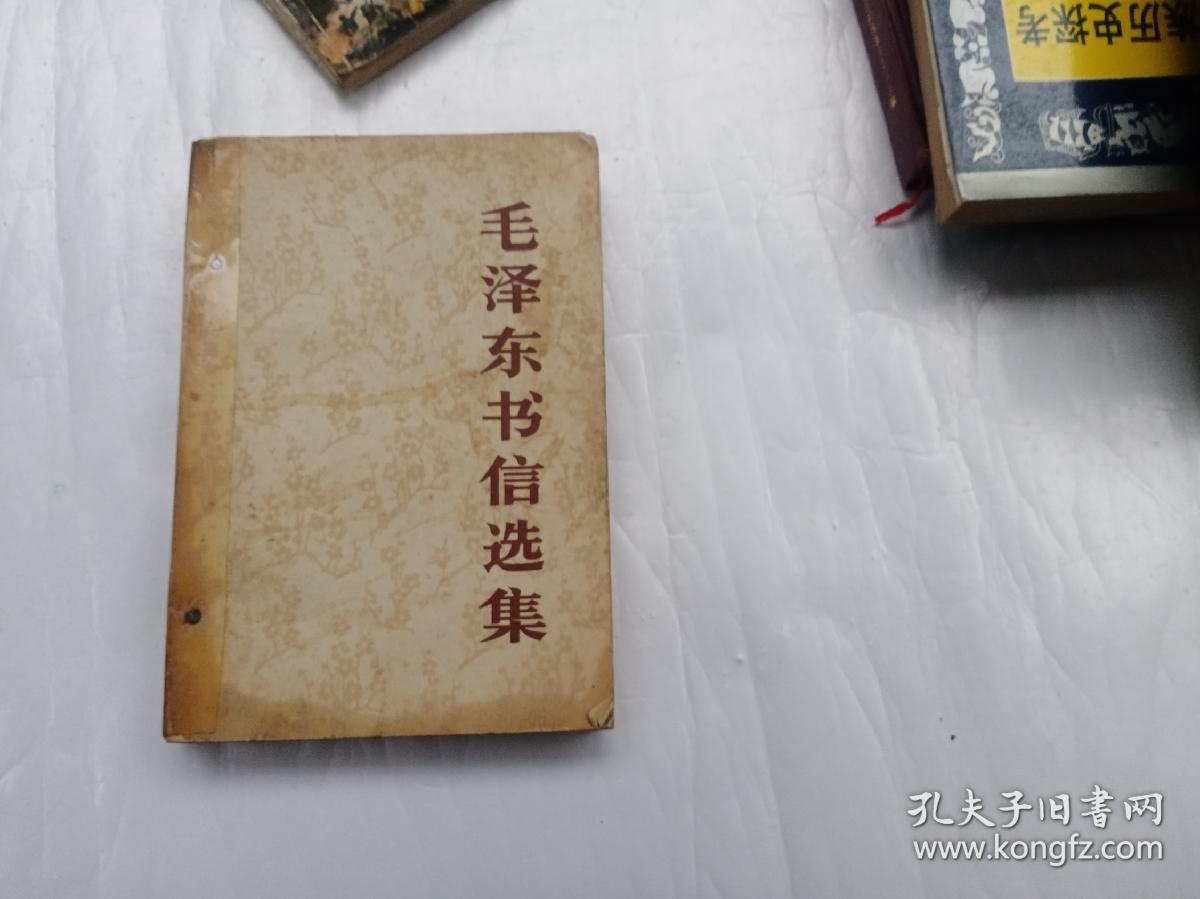 毛泽东书信选集
族历史探考
孔夫子旧書网
www.kongfz.com